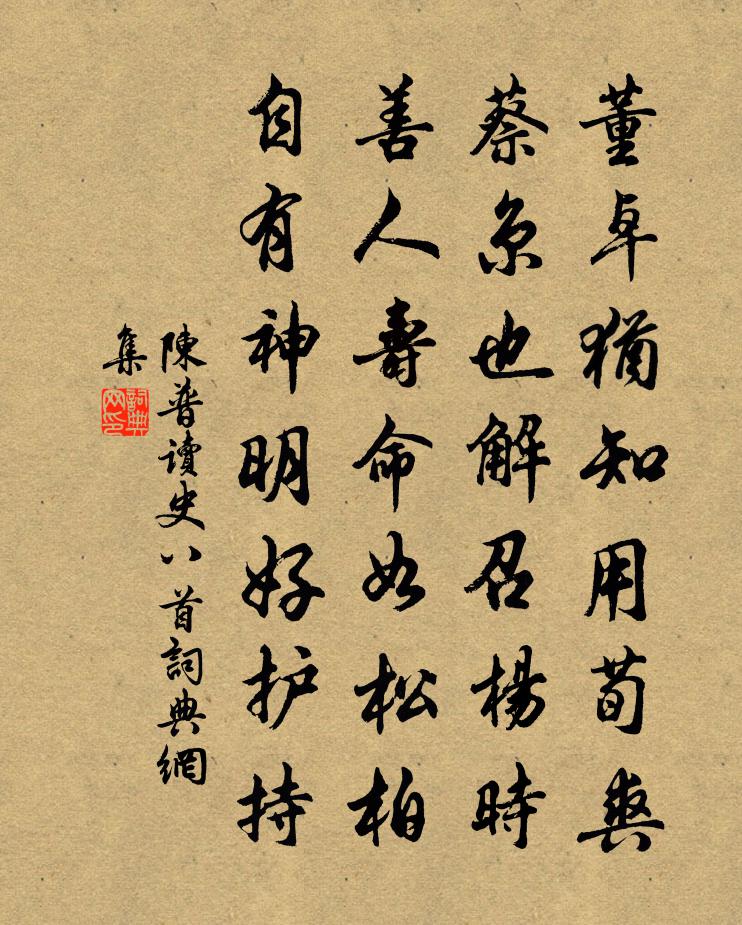 董卓猶知用荀爽
蔡京也解召楊時
善人壽命如松柏
自有神明好护持
陳普讀史八首詞典網
集
詞典網印